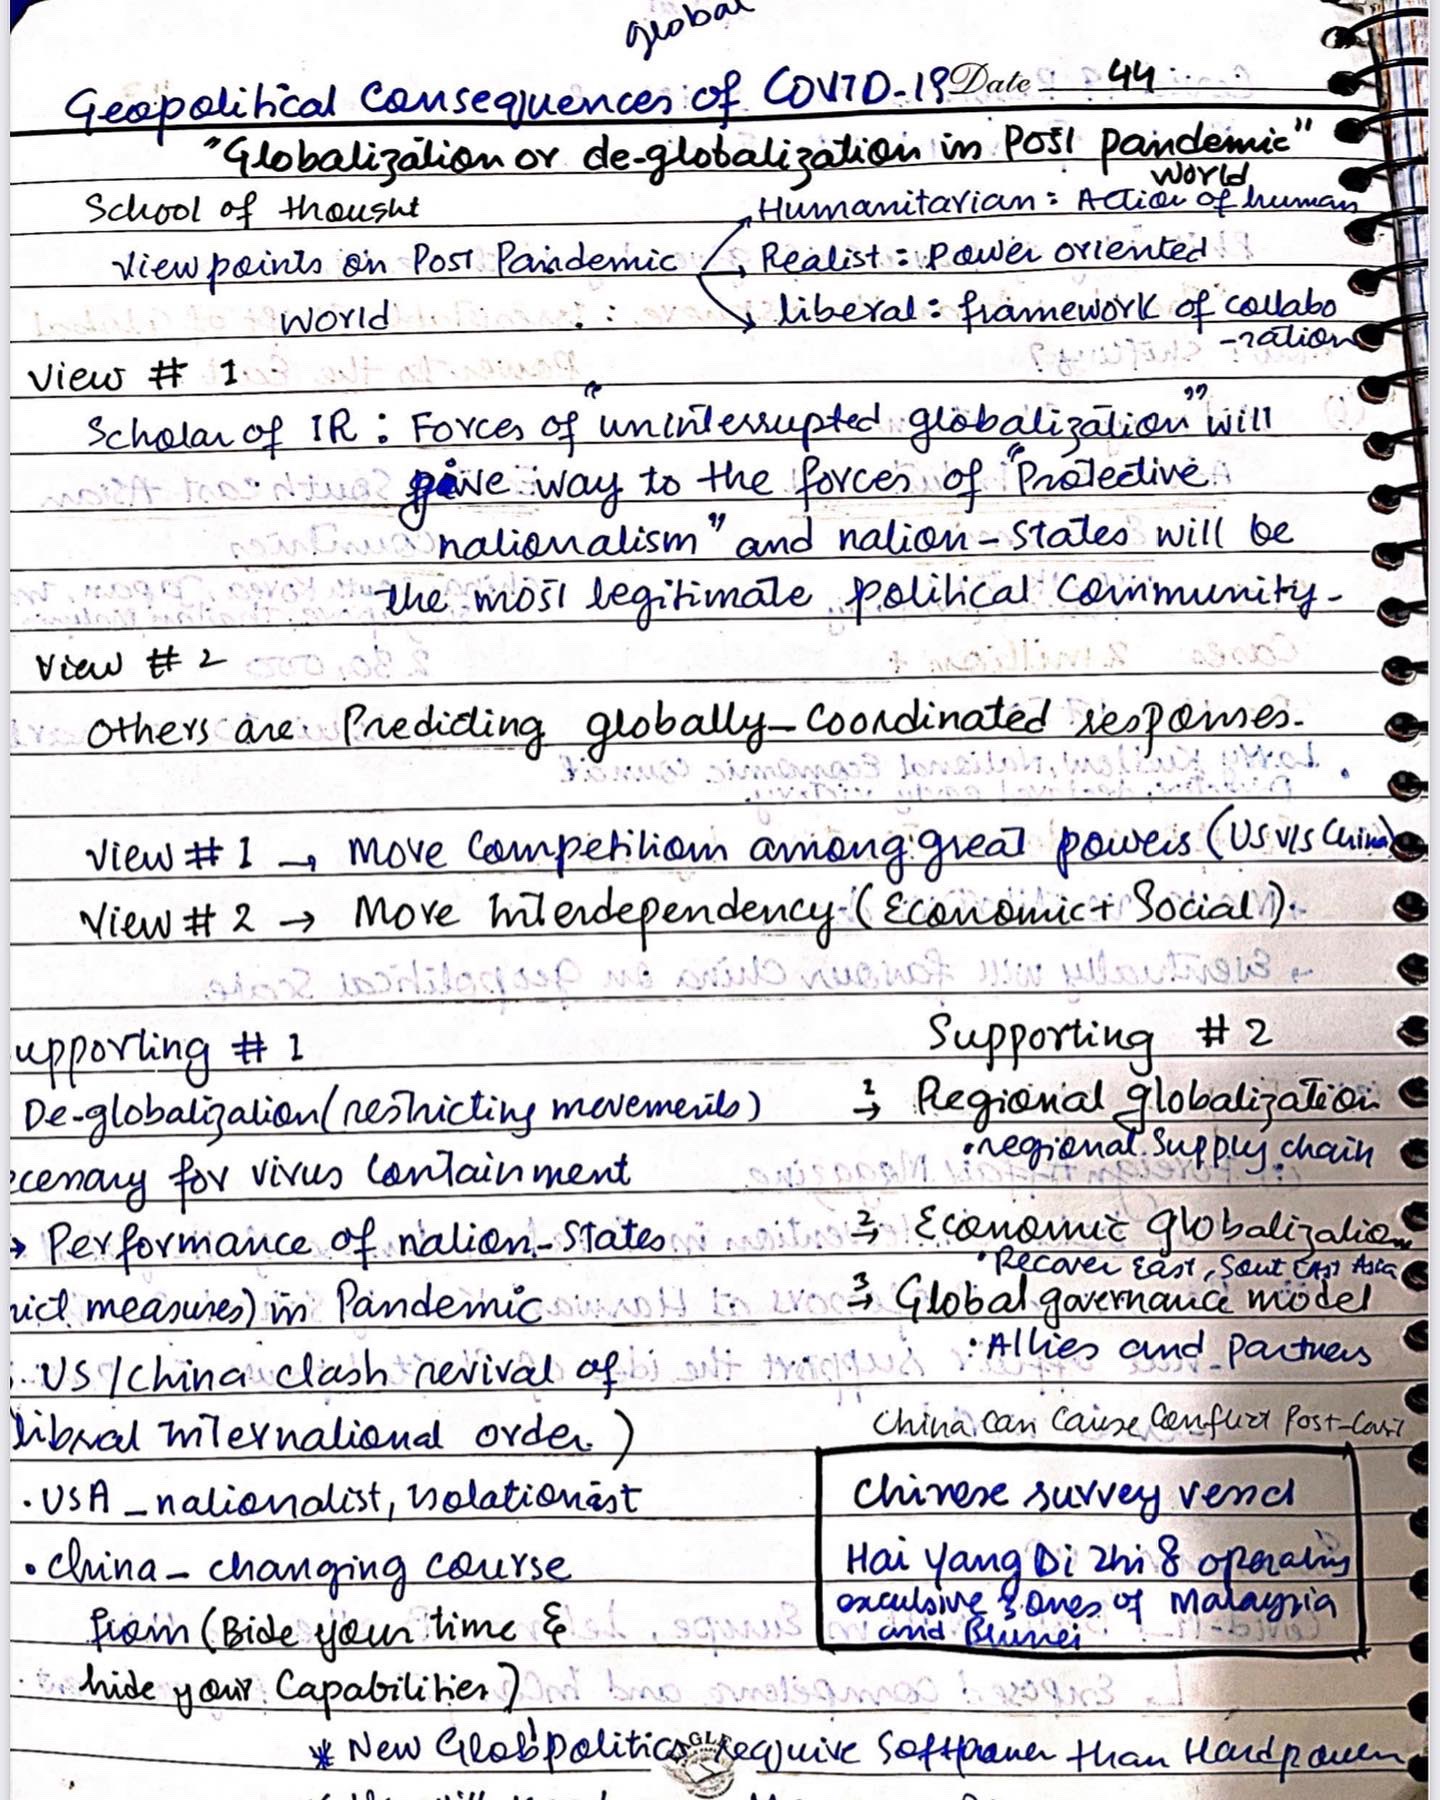 global
Geopolitical Consequences of COVID-19 Date 44
"Globalization or de-globalization in Post pandemic"
world
School of thought
Humanitarian : Action of human
Viewpoints on Post Pandemic
Realist : Power oriented
World : :
liberal : framework of collabo
-ration
View # 1
Scholar of IR : Forces of "uninterrupted globalization" will
give way to the forces of "Protective
nationalism" and nation-states will be
the most legitimate political community-
View # 2
Others are Predicting globally-coordinated responses.
View # 1 → More Competition among great powers (US v/s China)
View # 2 → More Interdependency (Economic + Social).
upporting # 1
Supporting # 2
De-globalization (restricting movements)
1→ Regional globalization
• regional supply chain
cenary for virus containment
→ Performance of nation-states
2→ Economic globalization
• Recover East, Sout East Asia
rict measures) in Pandemic
3→ Global governance model
• Allies and partners
US/China clash revival of
libral international order )
China can cause conflict Post-
• USA - nationalist, isolationist
• China - changing course
from (Bide your time &
hide your Capabilities)
Chinese survey
Hai Yang Di Zhi 8 operating
exculsive zones of Malaysia
and Brunei
* New Globpolitics require Softpower than Hardpower